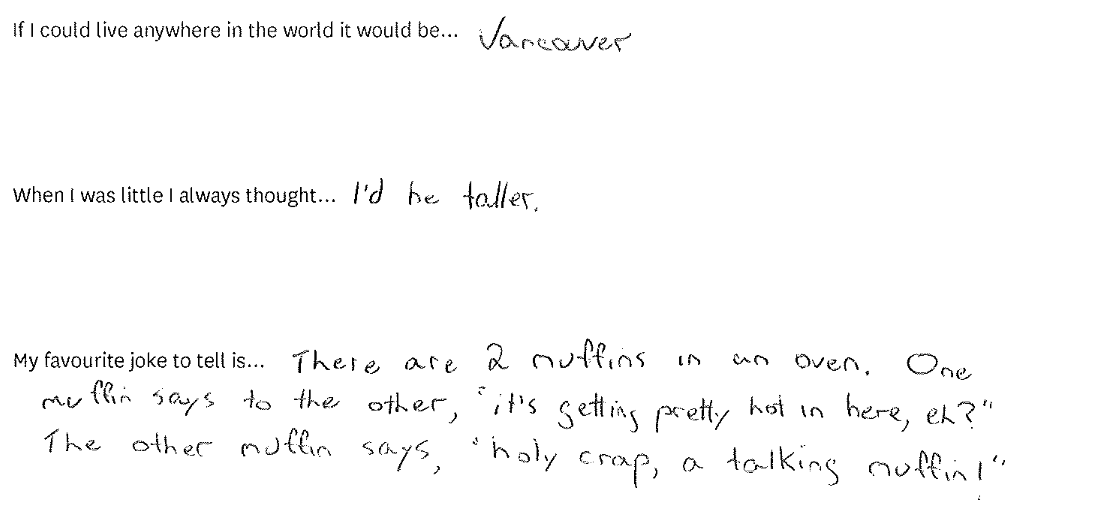 If I could live anywhere in the world it would be... Vancouver
When I was little I always thought... I'd be taller.
My favourite joke to tell is... There are 2 muffins in an oven. One
muffin says to the other, "it's getting pretty hot in here, eh?"
The other muffin says, "holy crap, a talking muffin!"